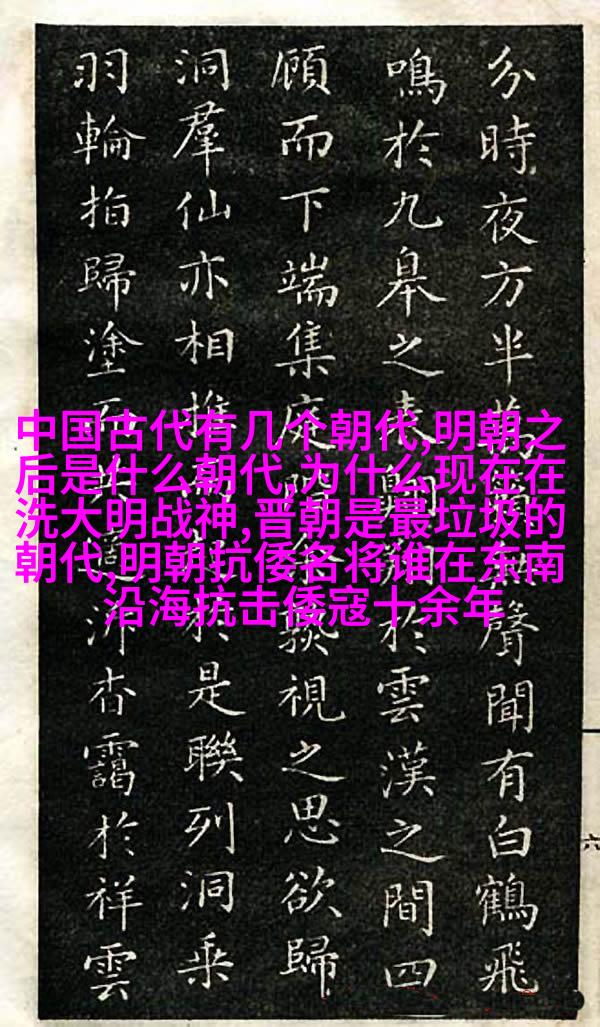 中国古代有几个朝代,明朝之
后是什么朝代,为什么现在在
洗大明战神,晋朝是最垃圾的
朝代,明朝抗倭名将谁在东南
沿海抗击倭寇十余年
分時夜方半萬聲聞有白鶴飛
鳴於九皋之表於雲漢之間四
顧而下端集庭視之思欲歸
洞羣仙亦相於是聯列洞乘
羽輪拍歸塗沛杳靄於祥雲
六